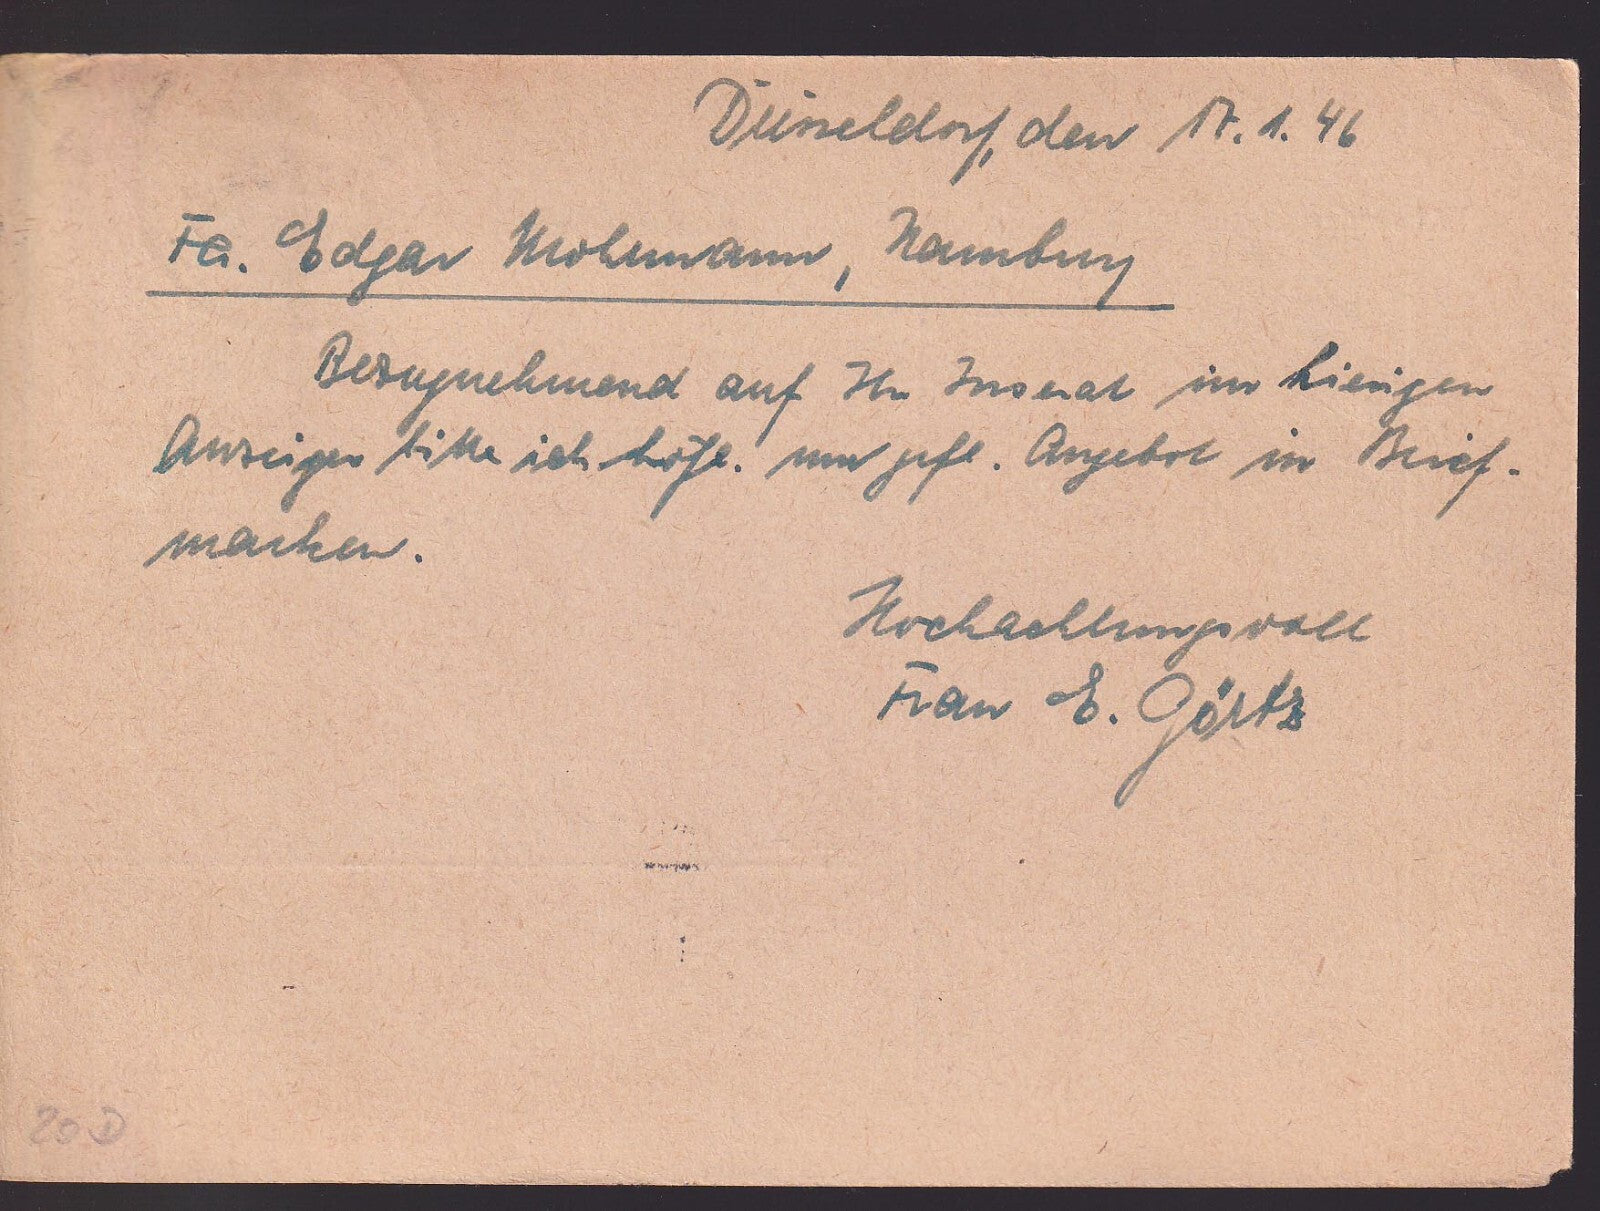 Düsseldorf, den 17.1.46
Fa. Edgar Mohrmann, Hamburg
Bezugnehmend auf Ihr Inserat im hiesigen
Anzeiger bitte ich höfl. um gefl. Angebot in Brief-
marken.
Hochachtungsvoll
Frau E. Görtz
20 D